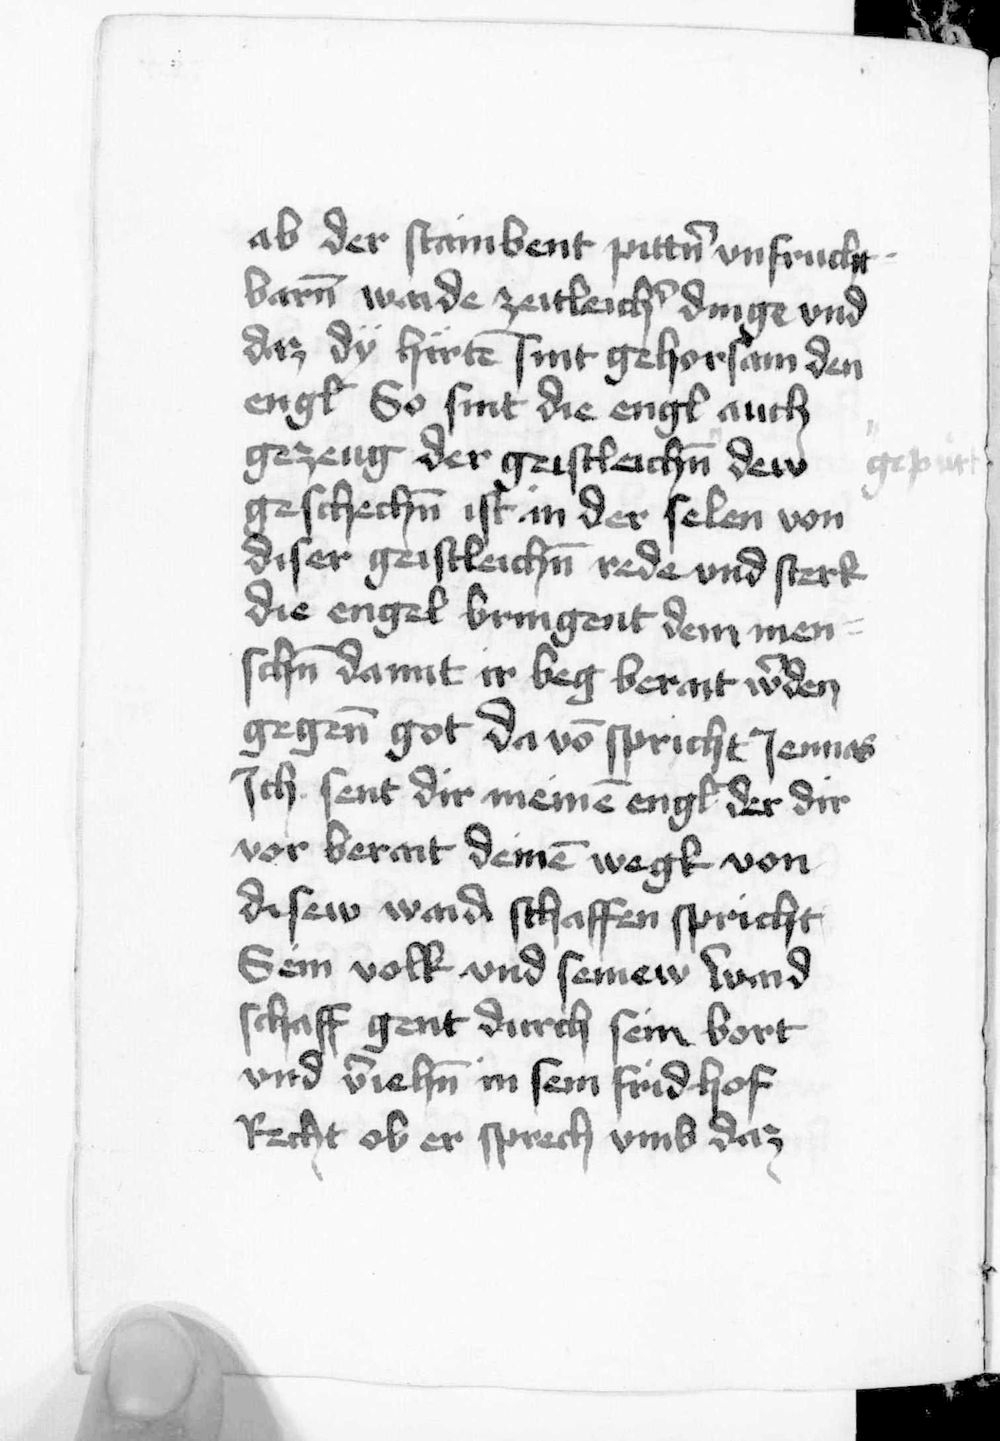 ab der stainbent pittn̄ vnfrucht-
barn̄ waide zeitleich᷑ dinge vnd
daz dÿ hirtē sint gehorsam den
engl So sint die engl auch
gezeug der geistleichn̄ dew "gepurt
geschechn̄ ist in der selen von
diser geistleichn̄ rede vnd sterk
die engel bringent dem men=
schn̄ damit ir beg berait w᷑den
gegen̄ got Da vō spricht
Ich sent dir meinē engl der dir
vor berait deinē wegk von
disew waid schaffen spricht
Sein volk vnd seinew waid
schaff gent durch sein bort
vnd v᷑iehn̄ in sein fridhof
Recht ob er sprech vmb daz